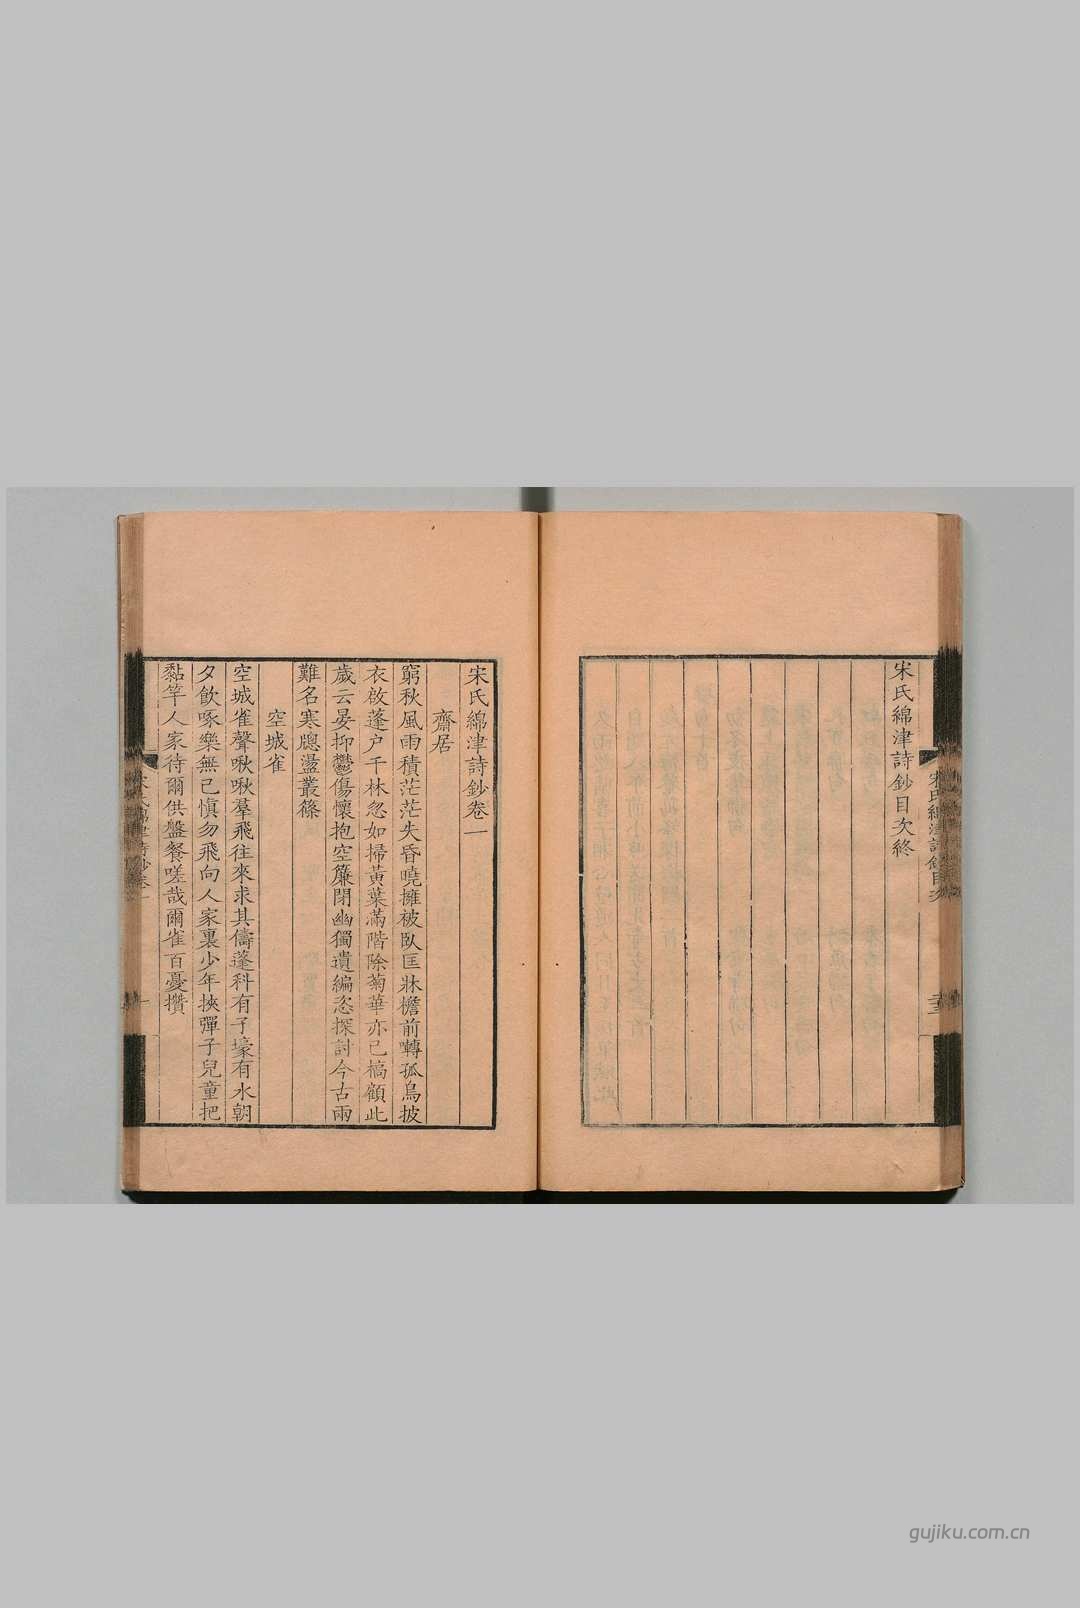 宋氏綿津詩鈔目次終
宋氏綿津詩鈔卷一
齋居
窮秋風雨積茫茫失昏曉擁被臥匡牀檐前囀孤鳥披
衣啟蓬户千林忽如掃黃葉滿階除菊華亦已槁顧此
歲云晏抑鬱傷懷抱空簾閉幽獨遺編恣探討今古兩
難名寒牕盪叢篠
空城雀
空城雀聲啾啾羣飛往來求其儔蓬科有子壕有水朝
夕飲啄樂無已慎勿飛向人家裏少年挾彈子兒童把
黏竿人家待爾供盤餐嗟哉爾雀百憂攢
gujiku.com.cn